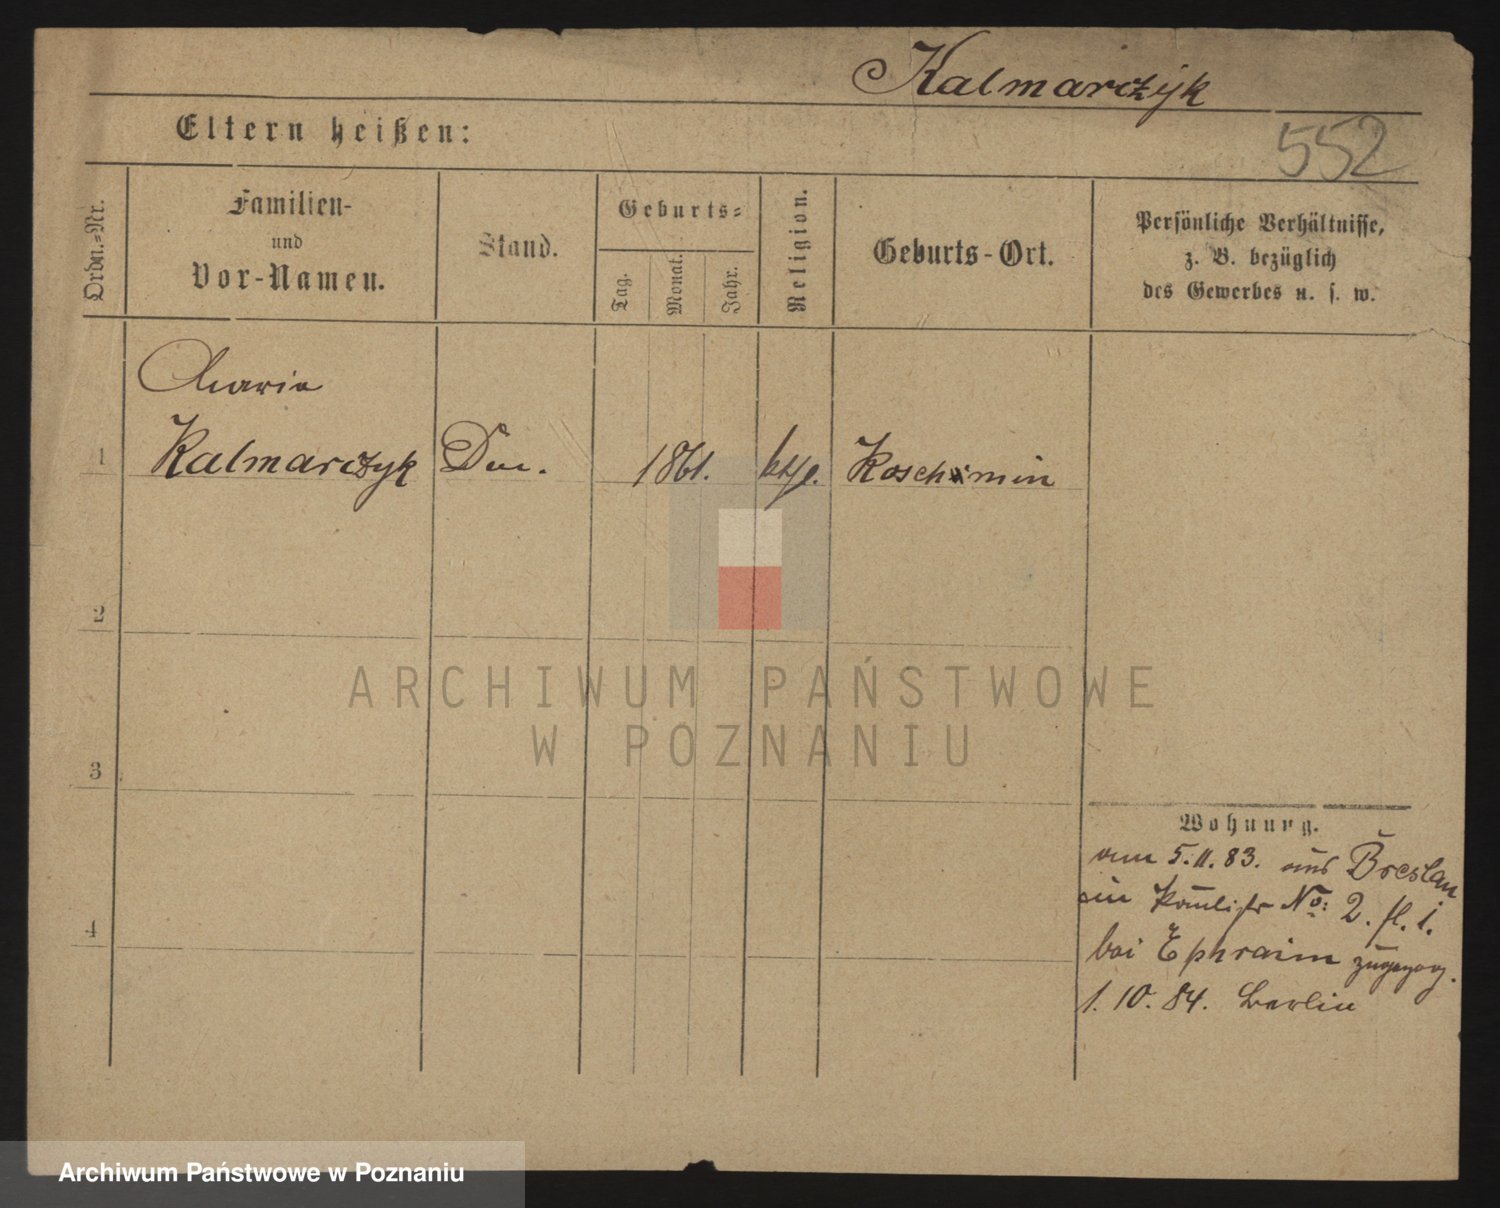 Kalmarczyk
552
Eltern heißen:
Ordn.=Nr.
Familien-
und
Vor-Namen.
Stand.
Geburts=
Tag.
Monat.
Jahr.
Religion.
Geburts-Ort.
Persönliche Verhältnisse,
z. B. bezüglich
des Gewerbes u. s. w.
Maria
1 Kalmarczyk 1861. ktl. Koschmin
2
3
4
Wohnung.
am 5.11.83. aus Breslau
in No: 2. fl. i.
bei Ephraim zugezog.
1.10.84. Berlin
ARCHIWUM PAŃSTWOWE
W POZNANIU
Archiwum Państwowe w Poznaniu